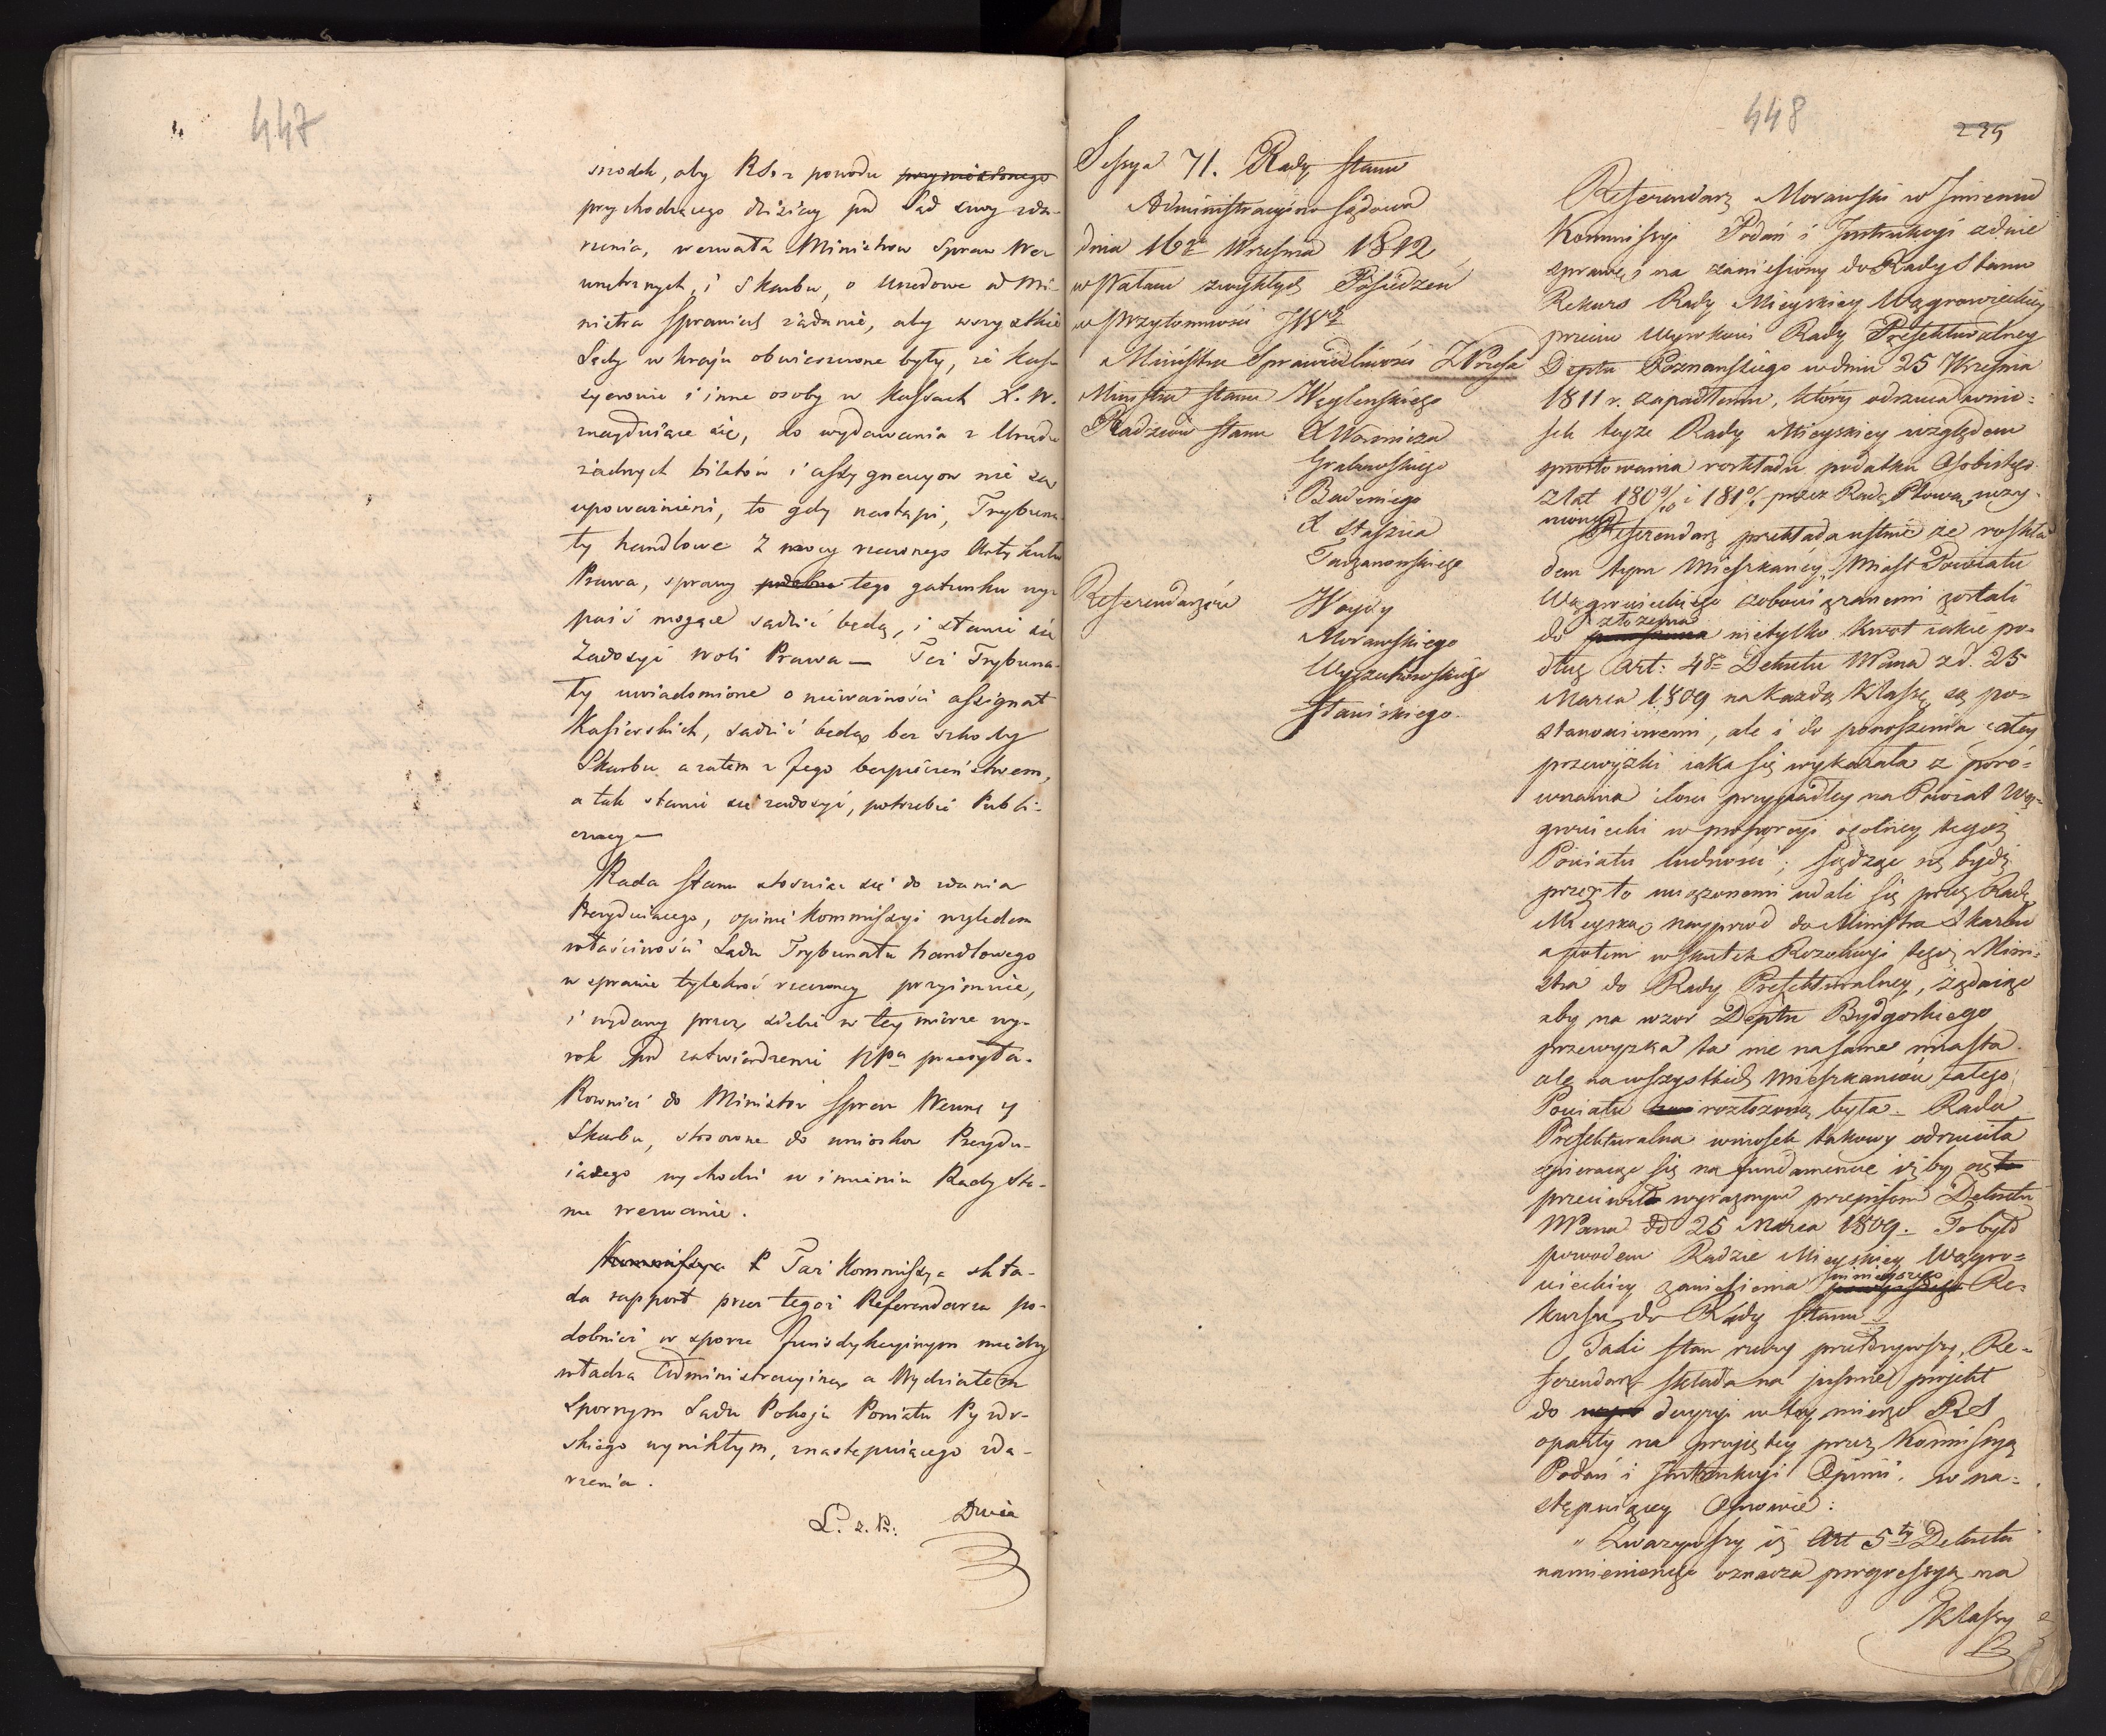 447
środek, aby RS. z powodu przyniesionego
przychodzącego dzisiay pod Sąd swoy zda-
rzenia, wezwała Ministrów Spraw Wew
wnętrznych, i Skarbu, o urzędowe od Mi-
nistra Sprawied. żądanie, aby wszystkie
Sądy w kraju obwieszczone były, że Kas-
syerowie i inne osoby w Kassach X. W.
znayduiące się, do wydawania z Urzędu
żadnych biletów i assygnacyow nie są
upoważnieni, to gdy nastąpi, Trybuna-
ły handlowe z mocy rzeczonego Artykułu
Prawa, sprawy podobne tego gatunku wy-
paść mogące sądzić będą, i stanie się
Zadosyć woli Prawa — Też Trybuna-
ły uwiadomione o nieważności assignat
Kasierskich, sądzić będą bez szkody
Skarbu a zatem z Jego bezpieczeństwem,
a tak stanie się zadosyć, potrzebie Publi-
czney —
Rada Stanu stosuiąc się do zdania
Prezyduiącego, opinię Kommissyi względem
właściwości Sądu Trybunału handlowego
w sprawie tylekroć rzeczoney przyimuie,
i wydany przez siebie w tey mierze wy-
rok pod zatwierdzenie NPa przesyła.
Rownież do Ministów Spraw Wewnę y
Skarbu, stosowne do wniosków Prezydu-
iącego wychodzi w imieniu Rady Sta-
nu wezwanie.
Kommissya P Taż Kommissya skła-
da rapport przez tegoż Referendarza po-
dobnież w sporze Jurisdykcyinym między
władzą Administracyiną a Wydziałem
Spornym Sądu Pokoju Powiatu Pyzdr-
skiego wynikłym, z następuiącego zda-
rzenia.
L. z. R.
448
239
Sessya 71. Rady Stanu
Administracyino sądowa
dnia 16go Września 1812
w Pałacu zwykłych Posiedzeń
w przytomności JWW
Ministra Sprawiedliwości ZPrezesa
Ministra Stanu Węglenskiego
Radzców Stanu X Woronicza
Grabowskiego
Badeniego
X Staszica
Referendarzów Woydy
Morawskiego
Wyczechowskiego
Referendarz Morawski w Imieniu
Kommissyi Podań i Instrukcyi zdaie
sprawę na zaniesiony do Rady Stanu
Rekurs Rady Mieyskiey Wągrowieckiey
przeciw Wyrokowi Rady Prefekturalney
Deptu Poznanskiego w dniu 25 Września
1811 r. zapadłemu, który odrzuca wnio-
sek teyże Rady Mieyskiey względem
sprostowania rozkładu podatku Osobistego
z lat 1809/10 i 1810/11 przez Radę Ptową uczy-
nionego. Referendarz przekłada ustnie że rozkła
dem tym Mieszkańcy Miast Powiatu
Wągrowieckiego zobowiązanemi zostali
złożenia
do nietylko kwot iakie po-
dług Art: 4go Dekretu NPana z d. 25
Marca 1809 na każdą Klassę są po-
stanowionemi, ale i do ponoszenia całey
przewyżki iaka się wykazała z poró-
wnania ilości przypadłey na Powiat Wą-
growiecki w proporcyi ogólney tegoż
Powiatu ludności; sądząc się bydź
przez to uciążonemi udali się przez Radę
Mieyską nayprzód do Ministra Skarbu
a potem w skutek Rezolucyi tegoż Mini-
stra do Rady Prefekturalney, żądaiąc
aby na wzór Deptu Bydgoskiego
przewyżka ta nie na same miasta
ale na wszystkich Mieszkanców całego
Powiatu rozłożoną była. Rada
Prefekturalna wniosek takowy odrzuciła
opieraiąc się na fundamencie iżby on
przeciwił wyraznym przepisom Dekretu
NPana dd 25 Marca 1809. To było
powodem Radzie Mieyskiey Wągro-
ninieyszego
wieckiey zaniesienia Re-
kursu do Rady Stanu.
Taki stan rzeczy przełożywszy, Re-
ferendarz składa na piśmie projekt
do decyzyi w tey mierze RS
oparty na przyiętey przez Kommissyą
Podań i Instrukcyi Opinii w na-
stępuiącey Osnowie:
„ Zważywszy iż Art 5ty Dekretu
namienionego oznacza progressyą na
Klassy